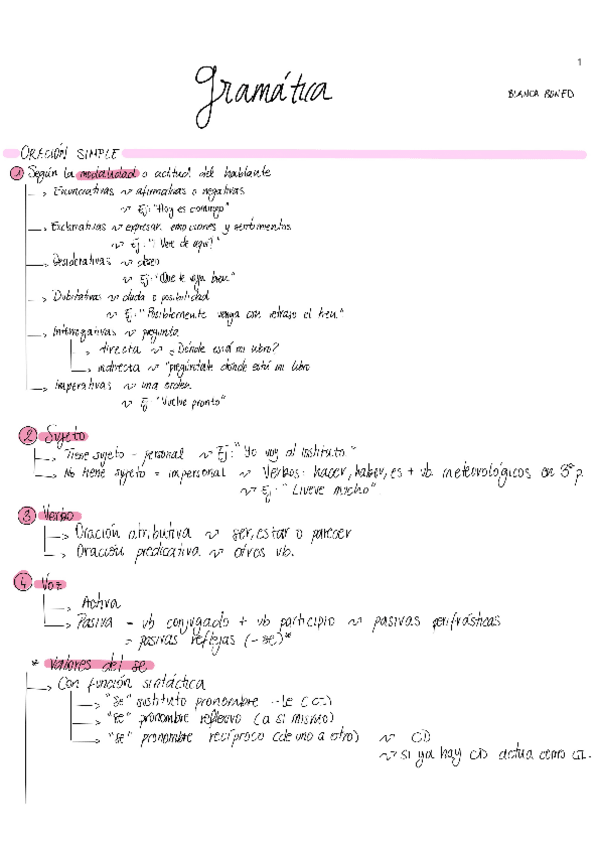 1
Gramática
BLANCA BONED
ORACIÓN SIMPLE
① Según la modalidad o actitud del hablante
→ Enunciativas ~ afirmativas o negativas
~ Ej: "Hoy es domingo"
→ Exclamativas ~ expresar emociones y sentimientos
~ Ej: "¡ Vete de aquí!"
→ Desiderativas ~ deseo
~ Ej: "Que te vaya bien"
→ Dubitativas ~ duda o posibilidad
~ Ej: "Posiblemente venga con retraso el tren"
→ Interrogativas ~ pregunta
→ directa ~ ¿Dónde está mi libro?
→ indirecta ~ "pregúntale dónde está mi libro
→ Imperativas ~ una orden
~ Ej "Vuelve pronto"
② Sujeto
→ Tiene sujeto - personal ~ Ej: "Yo voy al instituto"
→ No tiene sujeto = impersonal ~ Verbos: hacer, haber, es + vb. meteorológicos en 3ª p.
~ Ej: "Llueve mucho"
③ Verbo
→ Oración atributiva ~ ser, estar o parecer
→ Oración predicativa ~ otros vb.
④ Voz
→ Activa
→ Pasiva - vb conjugado + vb participio ~ pasivas perifrásticas
= pasivas reflejas (-se)*
* Valores del se
→ Con función sintáctica
→ "se" sustituto pronombre -le (CI)
→ "se" pronombre reflexivo (a sí mismo)
→ "se" pronombre recíproco (de uno a otro) ~ CD
~ si ya hay CD actúa como CI.